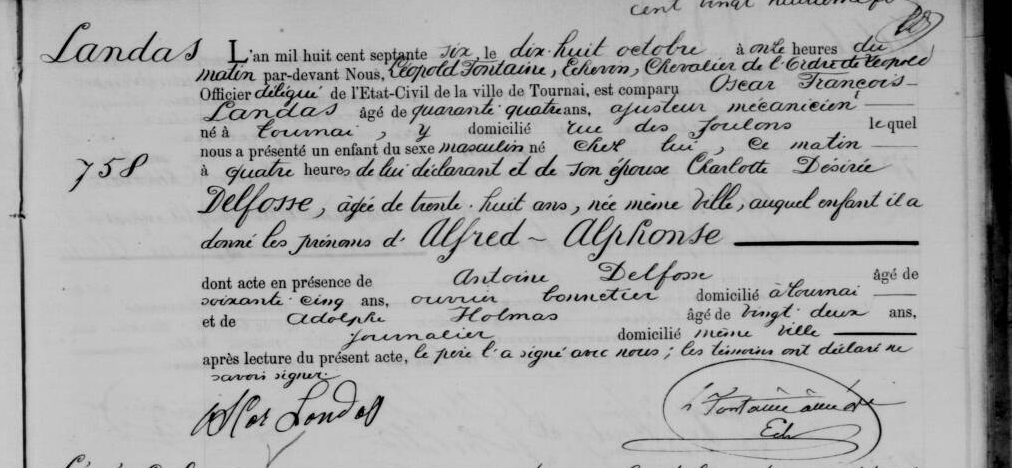 cent vingt
Landas L'an mil huit cent septante six, le dix-huit octobre à onze heures du
matin par-devant Nous, Léopold Fontaine, Echevin, Chevalier de l'Ordre de Léopold
Officier délégué de l'Etat-Civil de la ville de Tournai, est comparu Oscar François
Landas âgé de quarante quatre ans, ajusteur mécanicien
né à Tournai, y domicilié rue des Foulons lequel
nous a présenté un enfant du sexe masculin né chez lui, ce matin
758 à quatre heures de lui déclarant et de son épouse Charlotte Désirée
Delfosse, âgée de trente-huit ans, née même ville, auquel enfant il a
donné les prénoms d'Alfred-Alphonse
dont acte en présence de Antoine Delfosse âgé de
soixante-cinq ans, ouvrier bonnetier domicilié à Tournai
et de Adolphe Holmas âgé de vingt-deux ans,
journalier domicilié même ville
après lecture du présent acte, le père l'a signé avec nous; les témoins ont déclaré ne
savoir signer.
Oscar Landas
L Fontaine
Ech